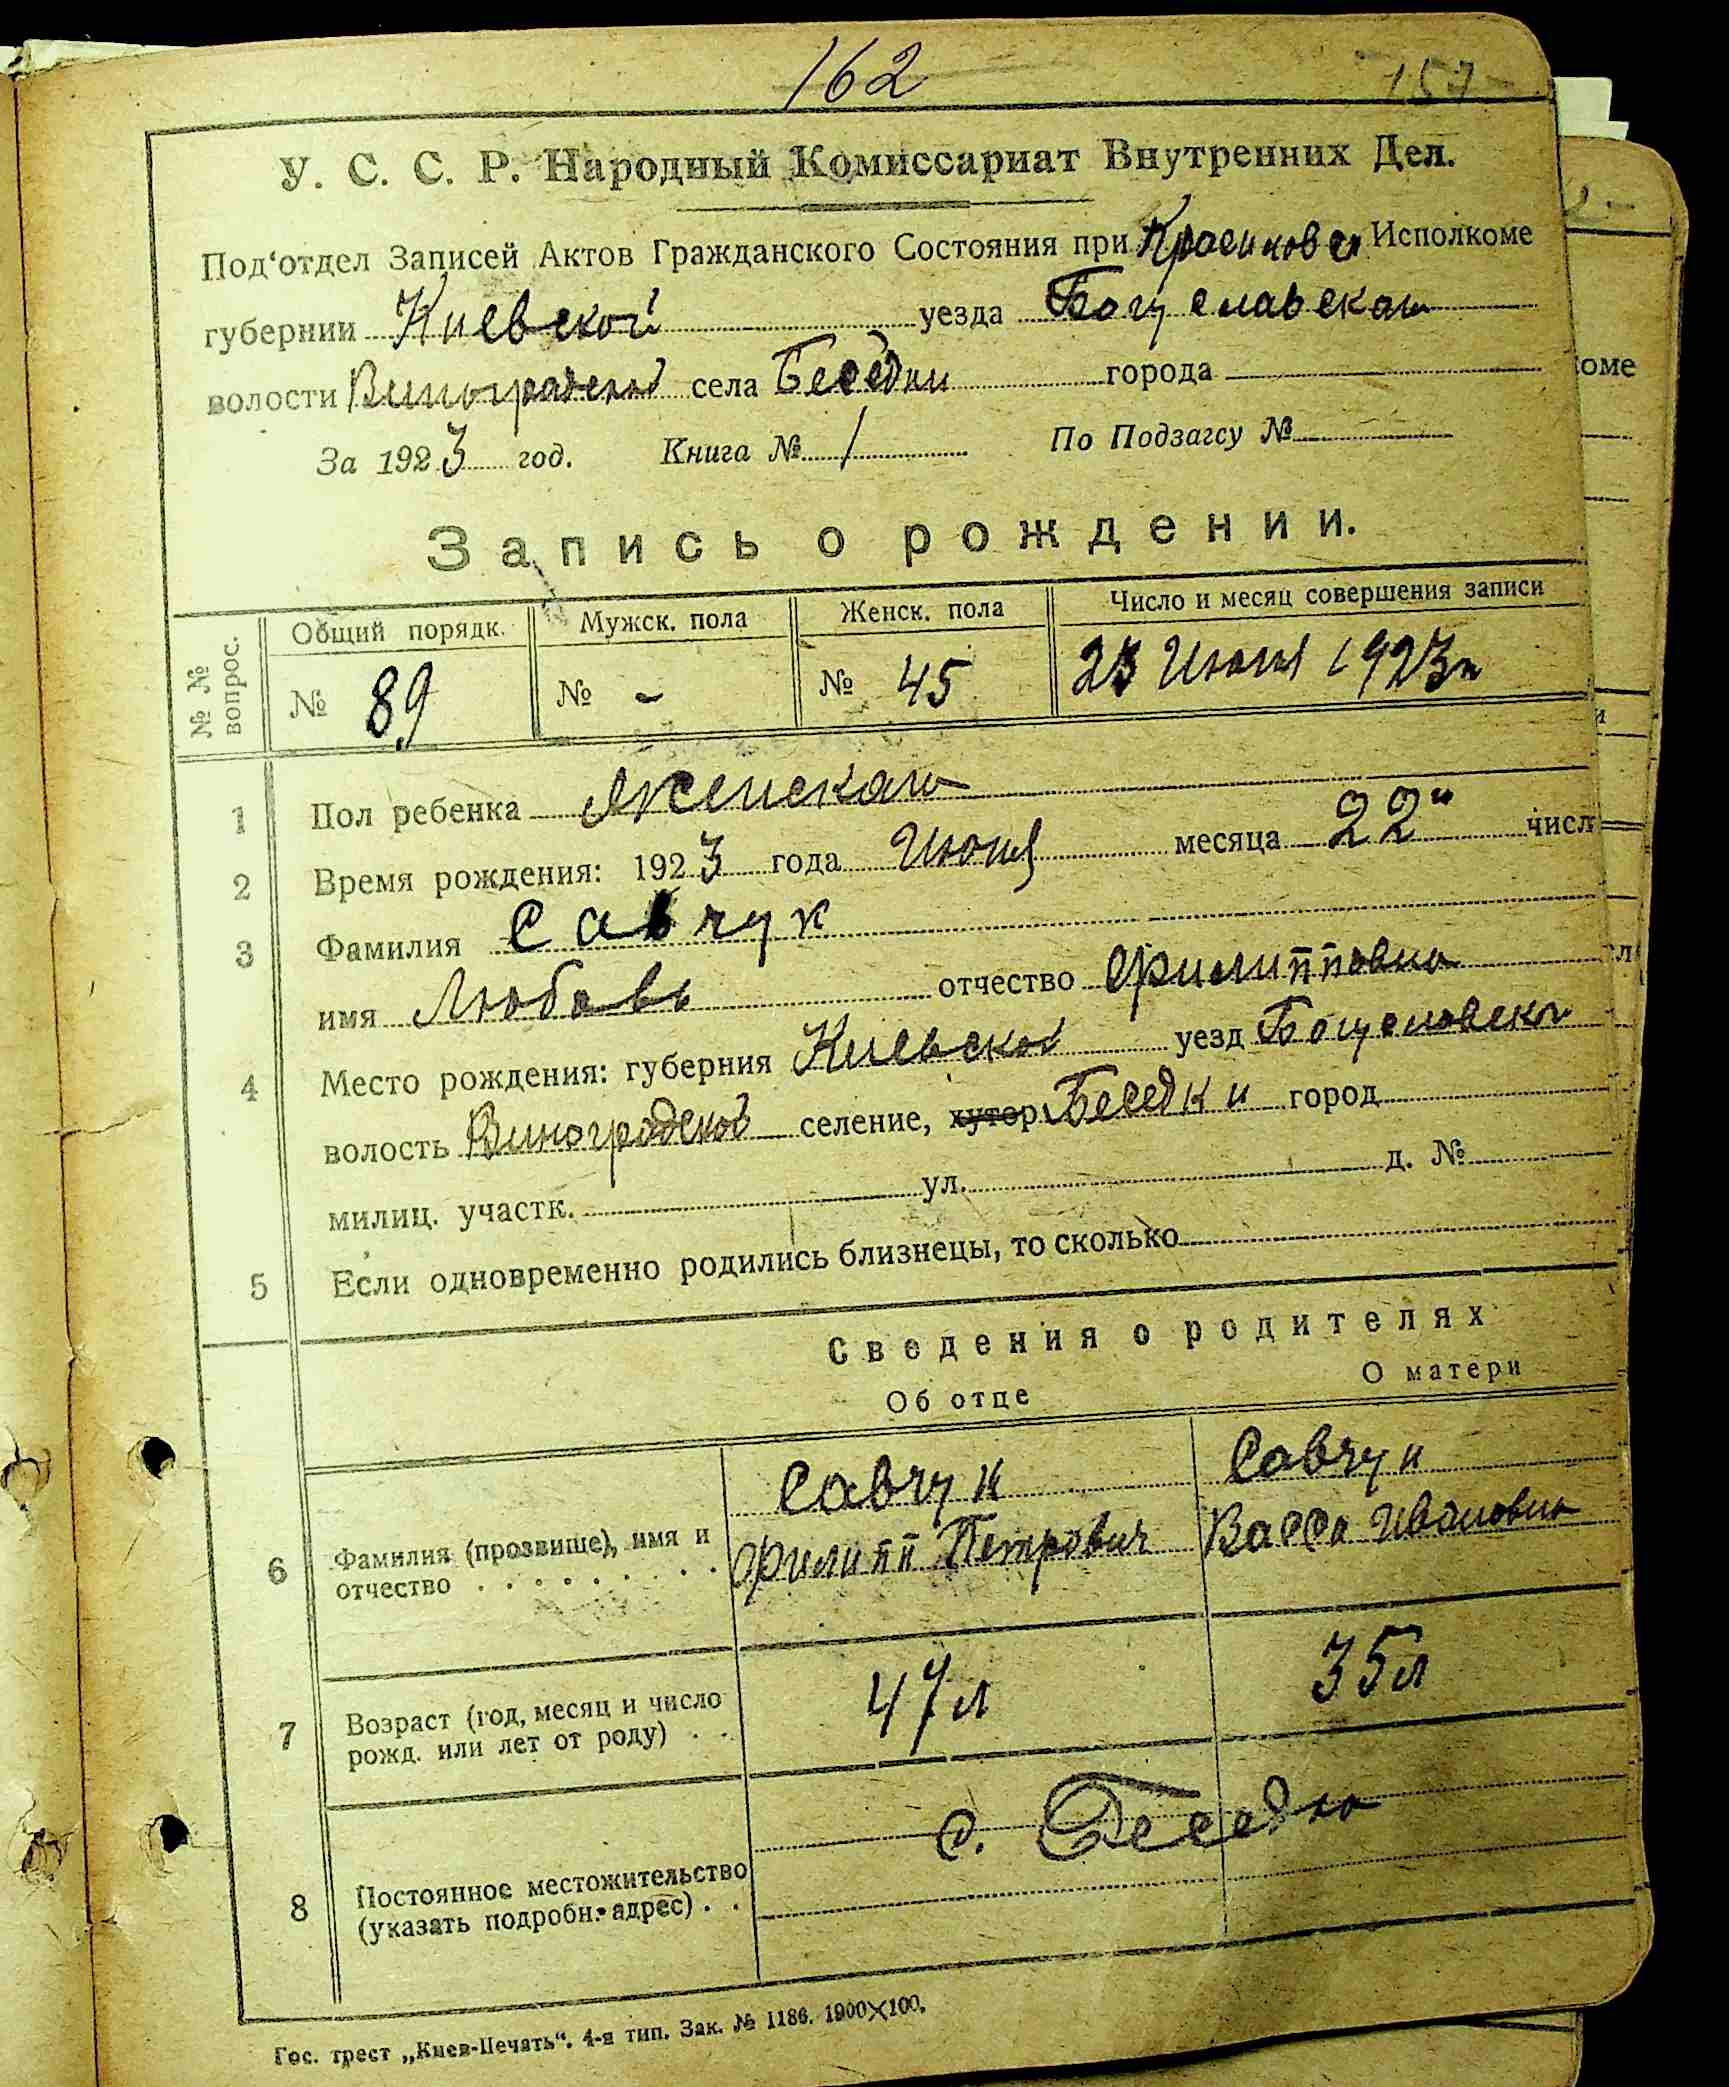 162
157
У. С. С. Р. Народный Комиссариат Внутренних Дел.
Под‘отдел Записей Актов Гражданского Состояния при Исполкоме
губернии Киевской уезда Богуславскаго
волости Виноградской села Беседки города
За 1923 год. Книга № 1 По Подзагсу №
Запись о рождении.
№ № вопрос.
Общий порядк. Мужск. пола Женск. пола Число и месяц совершения записи
№ 89 № - № 45 23 Июня 1923г
1 Пол ребенка Женскаго
2 Время рождения: 1923 года Июня месяца 22" числ
3 Фамилия Савчук
имя Любовь отчество Филипповна
4 Место рождения: губерния Киевской уезд Богуславской
волость Виноградской селение, хутор Беседки город
милиц. участк. ул. д. №
5 Если одновременно родились близнецы, то сколько
Сведения о родителях
Об отце О матери
Савчук Савчук
6 Фамилия (прозвище), имя и отчество Филипп Петрович Васса Ивановна
7 Возраст (год, месяц и число рожд. или лет от роду) 47л 35л
8 Постоянное местожительство (указать подробн. адрес) с. Беседка
Гос. трест „Киев-Печать“. 4-я тип. Зак. № 1186. 1900×100.
оме